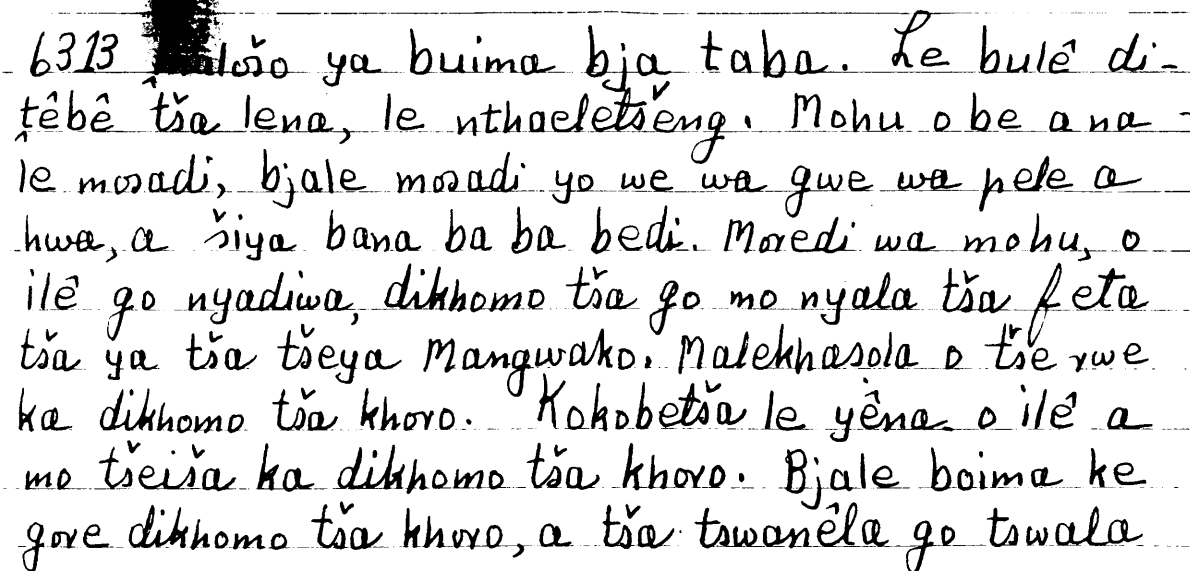 6313 ya buima bja taba. Le bulê di-
têbê tša lena, le nthaeletšêng. Mohu o be a na
le mosadi, bjale mosadi yo we wa gwe wa pele a
hwa, a šiya bana ba ba bedi. Moredi wa mohu, o
ilê go nyadiwa, dikhomo tša go mo nyala tša feta
tša ya tša tšeya Mangwako. Malekhasola o tše rwe
ka dikhomo tša khoro. Kokobetša le yêna o ilê a
mo tšeiša ka dikhomo tša khoro. Bjale boima ke
gore dikhomo tša khoro, a tša tswanêla go tswala